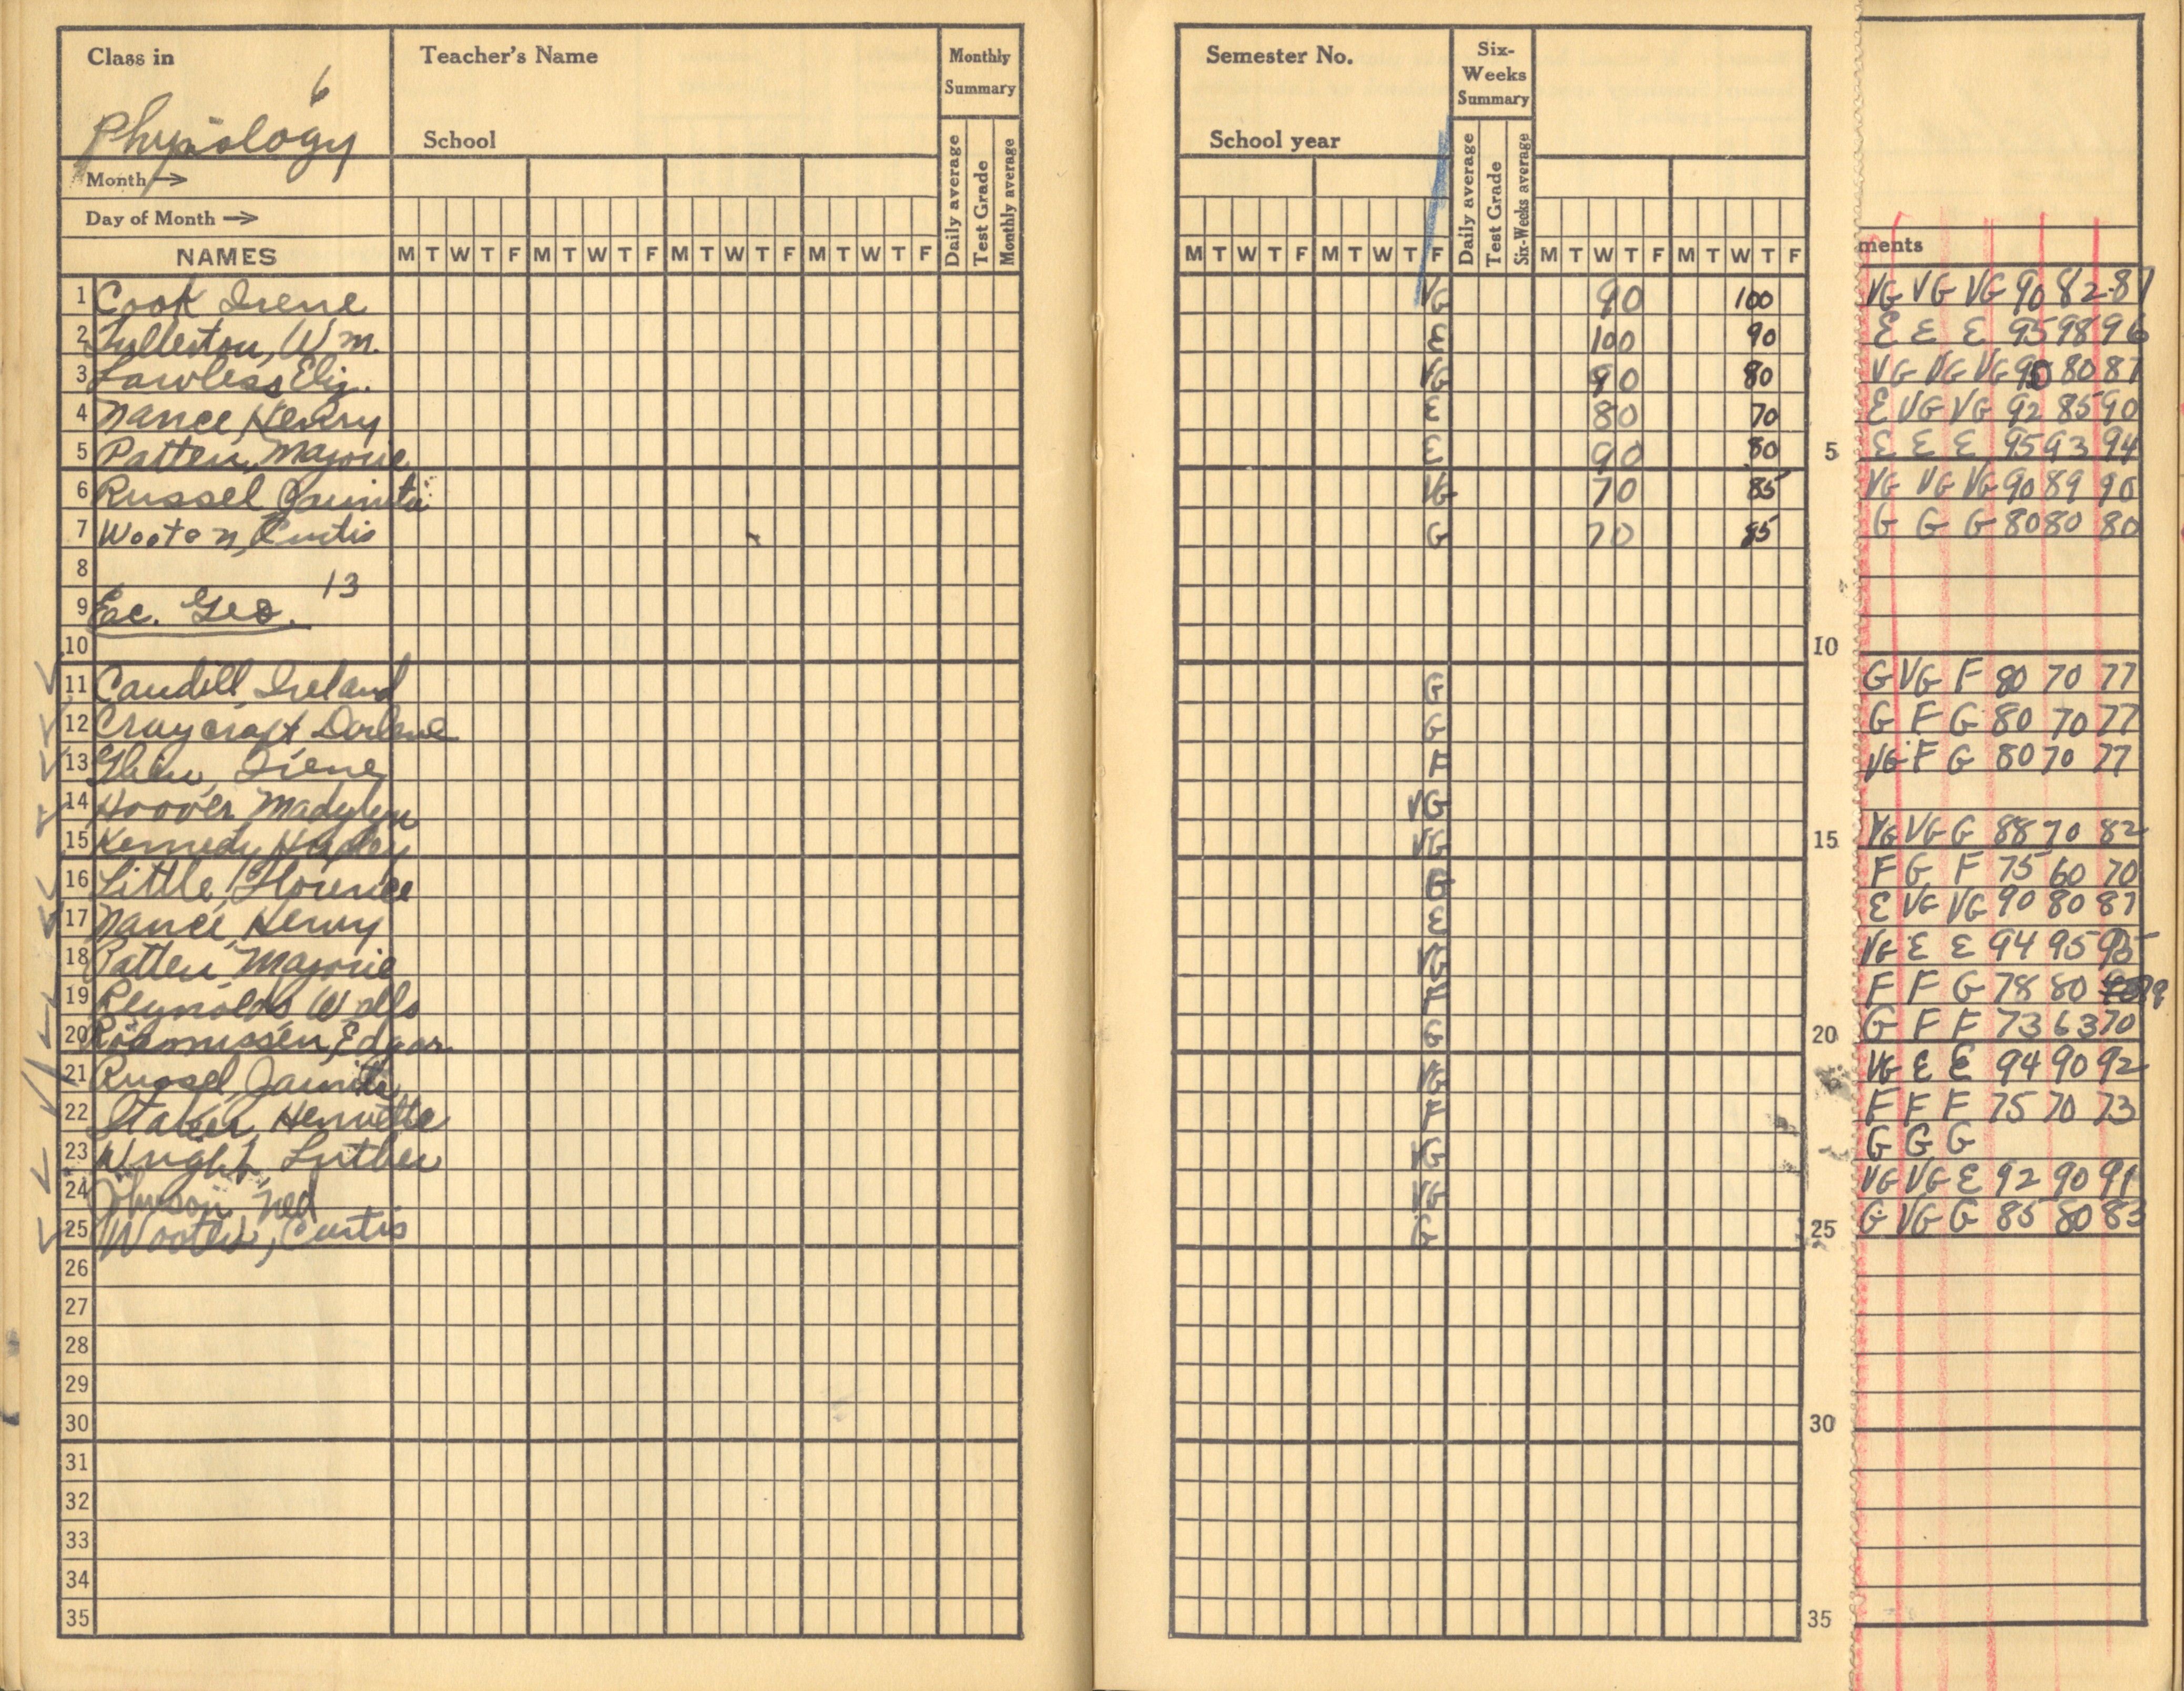 Class in
6
Physiology
Teacher's Name
School
Monthly Summary
Month →
Day of Month →
NAMES
M T W T F M T W T F M T W T F M T W T F
Daily average
Test Grade
Monthly average
Semester No.
School year
Six-Weeks Summary
M T W T F M T W T F
Daily average
Test Grade
Six-Weeks average
M T W T F M T W T F
ments
1 Cook Irene VG 90 100 VG VG VG 90 82 87
2 Fullerton, Wm. E 100 90 E E E 95 98 96
3 Lawless Eliz. VG 90 80 VG VG VG 90 80 87
4 Nance, Henry E 80 70 E VG VG 92 85 90
5 Patten, Majorie E 90 80 5 E E E 95 93 94
6 Russel Jaunita VG 70 85 VG VG VG 90 89 90
7 Wooton, Curtis G 70 85 G G G 80 80 80
8
13
9 Ec. Geo.
10 10
11 Caudill, Ireland G G VG F 80 70 77
12 Craycraft Darlene G G F G 80 70 77
13 Irene F VG F G 80 70 77
14 Hoover Madylyn VG
15 Kennedy VG 15 VG VG G 88 70 82
16 Little, Florence G F G F 75 60 70
17 Nance, Henry E E VG VG 90 80 87
18 Patten, Majorie VG VG E E 94 95 95
19 Reynolds F F F G 78 80
20 Rasmussen, Edgar G 20 G F F 73 63 70
21 Russel, Jaunita VG VG E E 94 90 92
22 Staker F F F F 75 70 73
23 Wright, Luther VG G G G
24 Johnson, Ned VG VG VG E 92 90 91
25 Wooten, Curtis G 25 G VG G 85 80 83
26
27
28
29
30 30
31
32
33
34
35 35